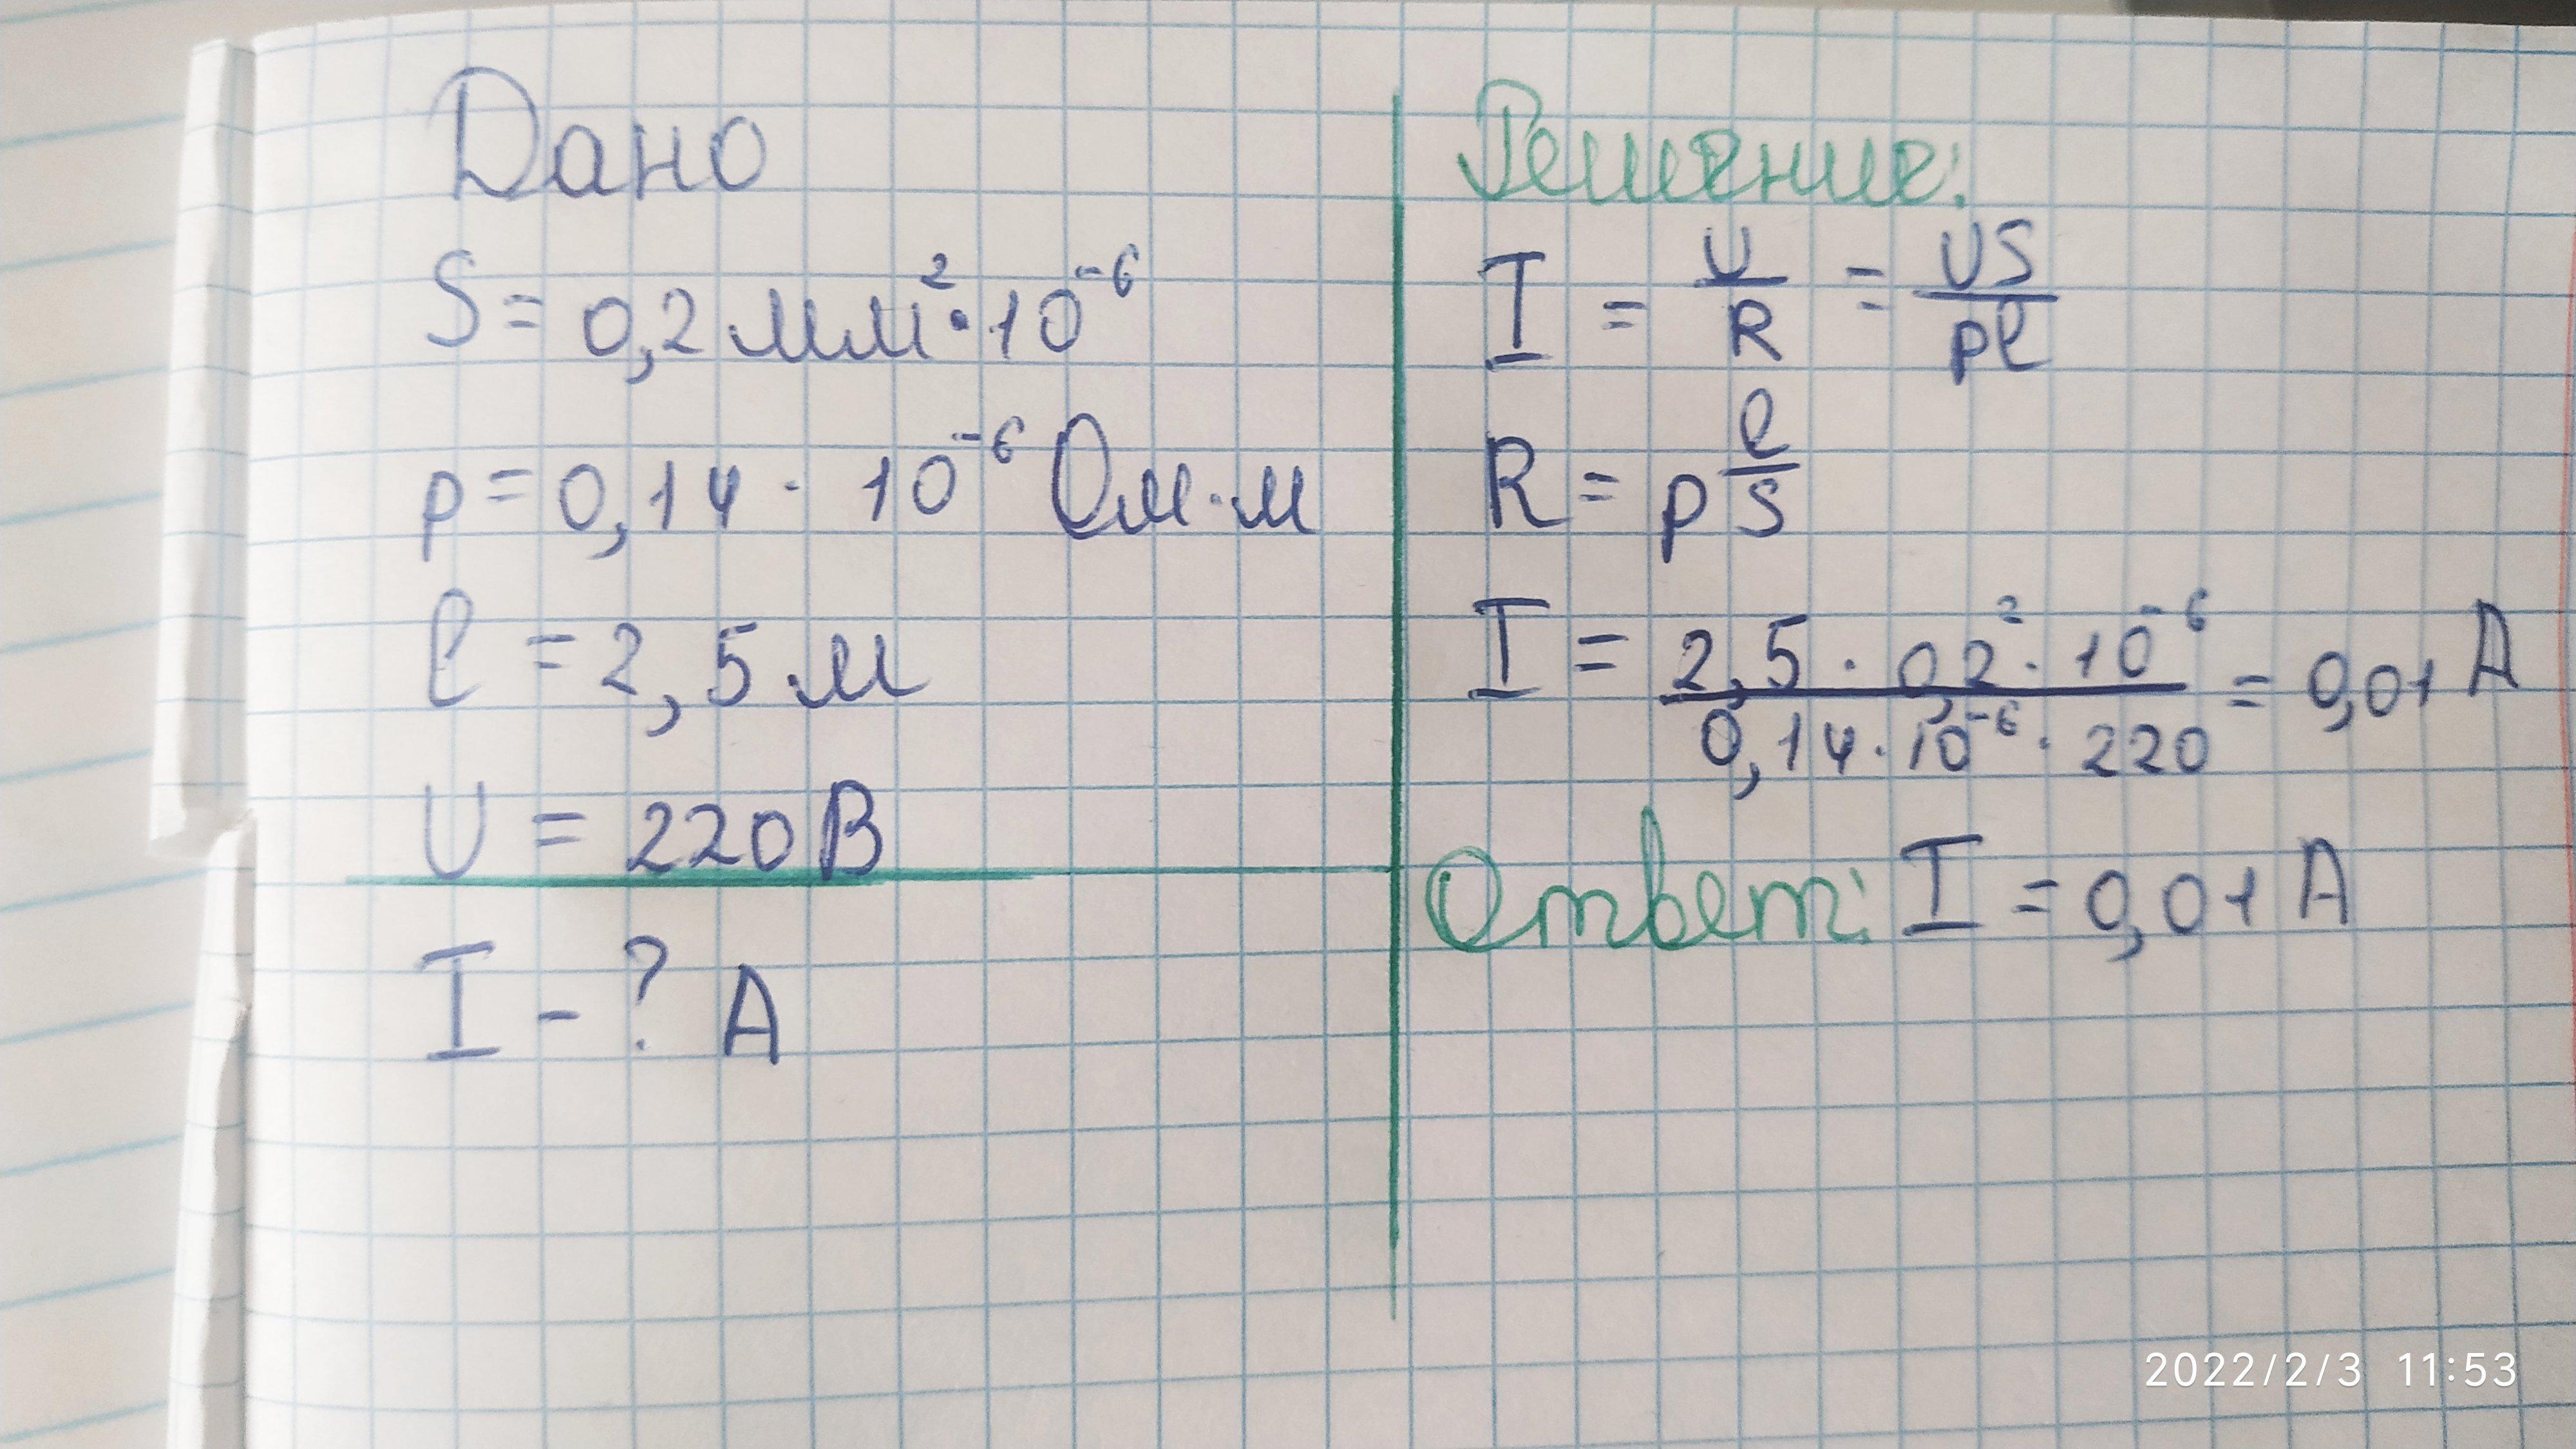 Дано
S = 0,2 мм² · 10⁻⁶
ρ = 0,14 · 10⁻⁶ Ом·м
ℓ = 2,5 м
U = 220 В
I - ? А
Решение:
I = U/R = US/ρℓ
R = ρ ℓ/S
I = 2,5 · 0,2² · 10⁻⁶ / 0,14 · 10⁻⁶ · 220 = 0,01 А
Ответ: I = 0,01 А
2022/2/3 11:53